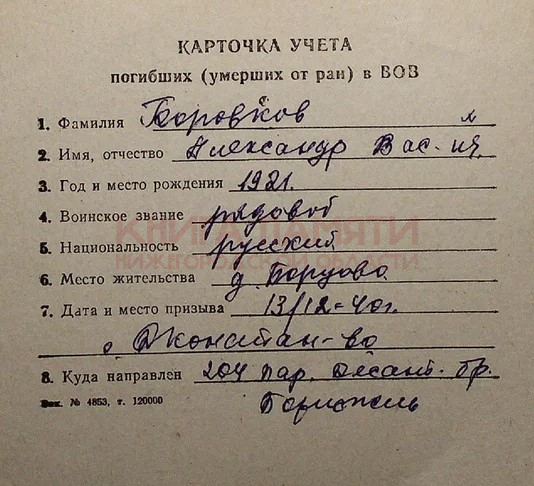 КАРТОЧКА УЧЕТА
погибших (умерших от ран) в ВОВ
1. Фамилия Боровков
2. Имя, отчество Александр Вас-ич.
3. Год и место рождения 1921.
4. Воинское звание рядовой
КНИГА ПАМЯТИ
5. Национальность русский
НИЖЕГОРОДСКОЙ ОБЛАСТИ
6. Место жительства д. Борцово
7. Дата и место призыва 13/12-40г.
Дконстан-во
8. Куда направлен 204 пар. десант. бр.
Зак. № 4853, т. 120000 Борисполь